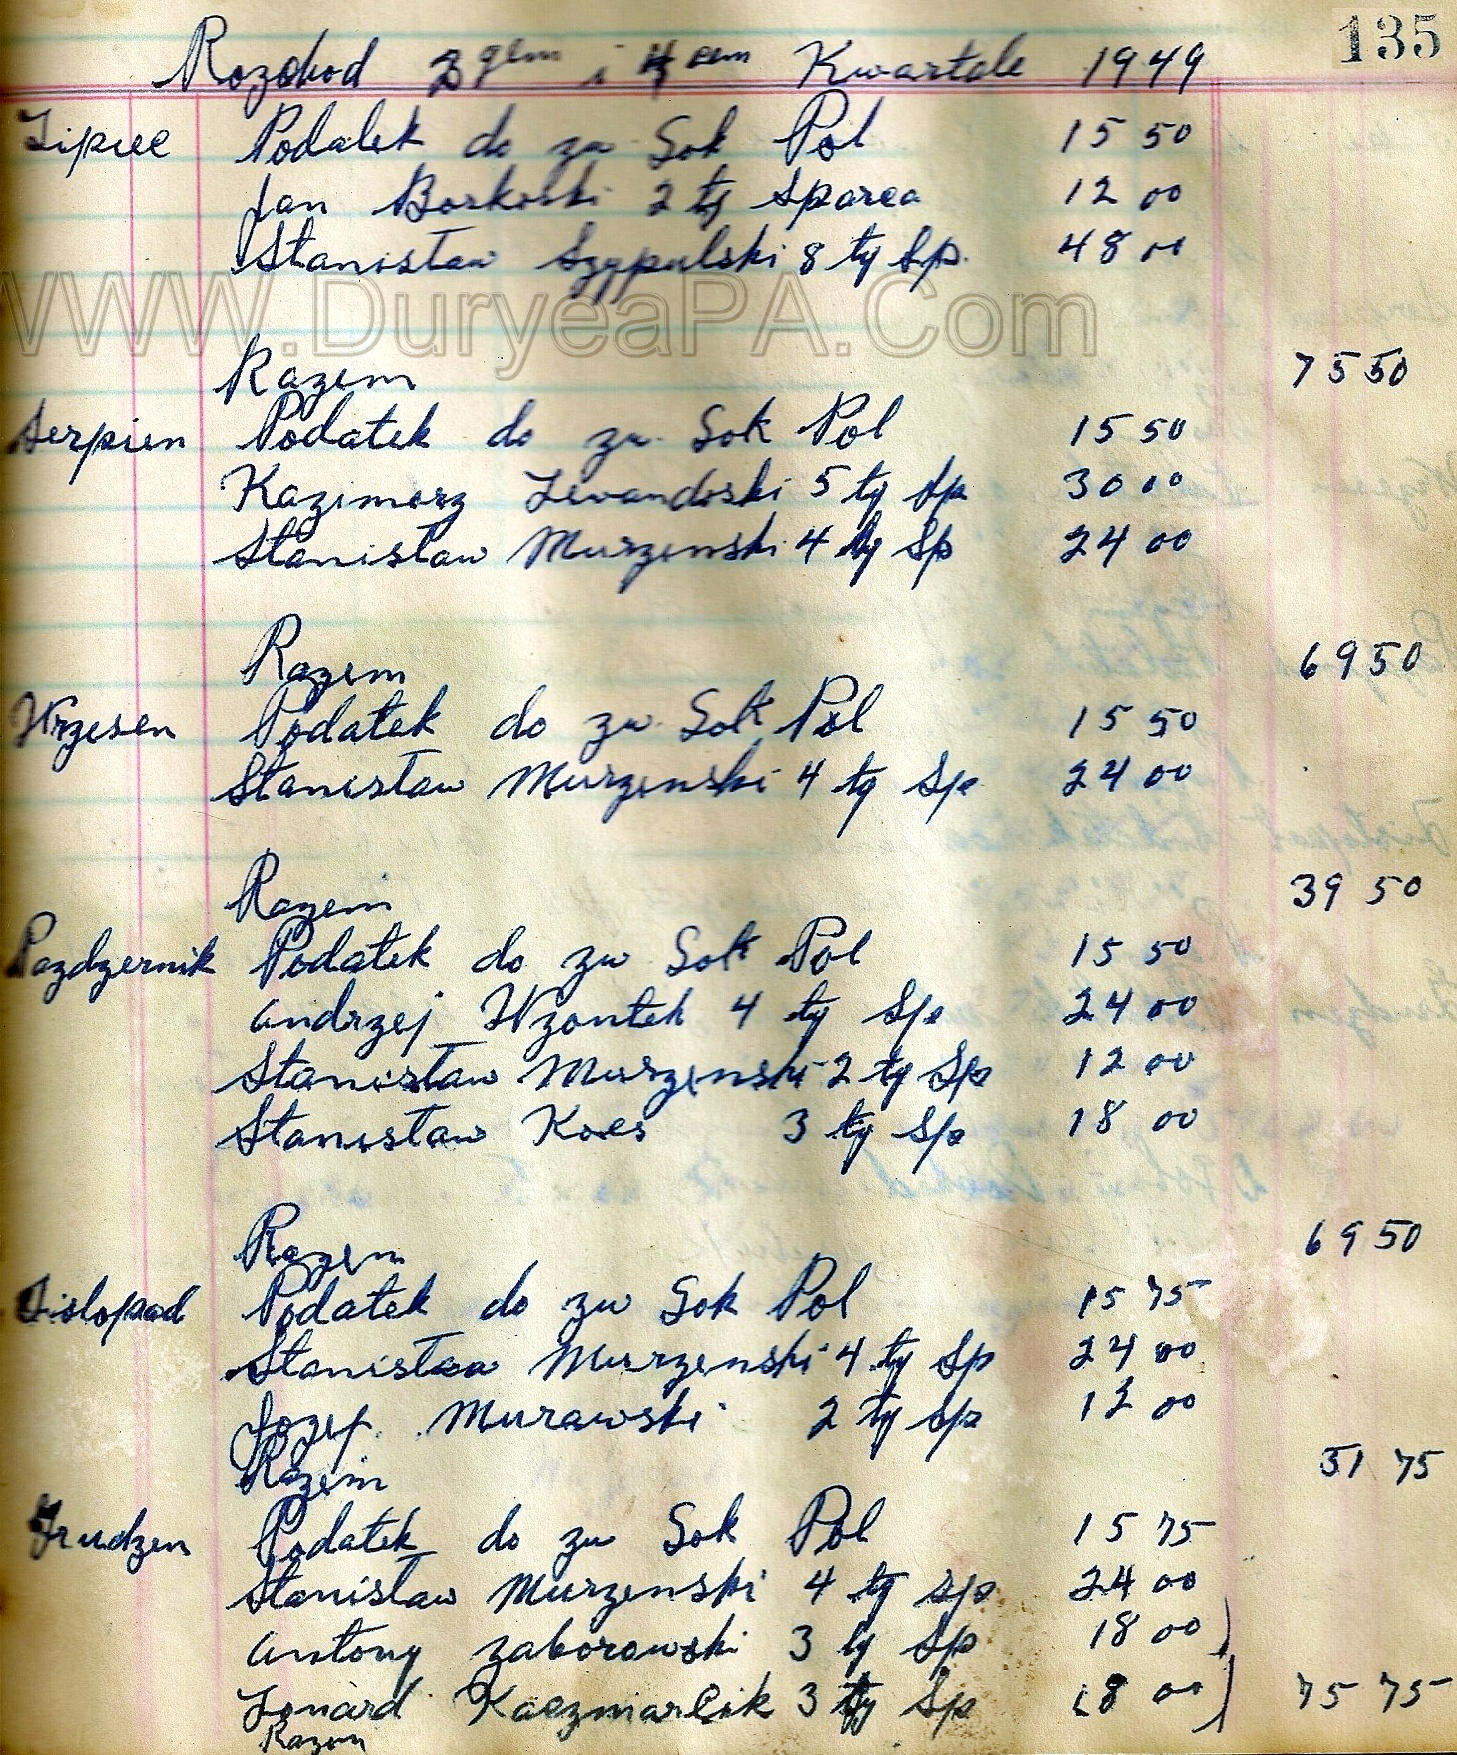 135
Rozchod 3 gem i 4 em Kwartale 1949
Lipiec Podatek do zw Sok Pol 15 50
Jan Borkoski 2 ty Sparea 12 00
Stanisław Szypulski 8 ty Sp. 48 00
WWW.DuryeaPA.Com
Razem 75 50
Serpien Podatek do zw. Sok Pol 15 50
Kazimerz Lewandoski 5 ty Sp 30 00
Stanisław Murzenski 4 ty Sp 24 00
Razem 69 50
Wrzesen Podatek do zw. Sok Pol 15 50
Stanisław Murzenski 4 ty Sp 24 00
Razem 39 50
Pazdzernik Podatek do zw Sok Pol 15 50
Andrzej Wzontek 4 ty Sp 24 00
Stanisław Murzenski 2 ty Sp 12 00
Stanisław Koes 3 ty Sp 18 00
Razem 69 50
Listopad Podatek do zw Sok Pol 15 75
Stanisław Murzenski 4 ty Sp 24 00
Jozef Murawski 2 ty Sp 12 00
Razem 51 75
Grudzen Podatek do zw Sok Pol 15 75
Stanisław Murzenski 4 ty sp 24 00
Antony Zaborowski 3 ty Sp 18 00
Lonard Kaczmarcik 3 ty Sp 18 00 75 75
Razem